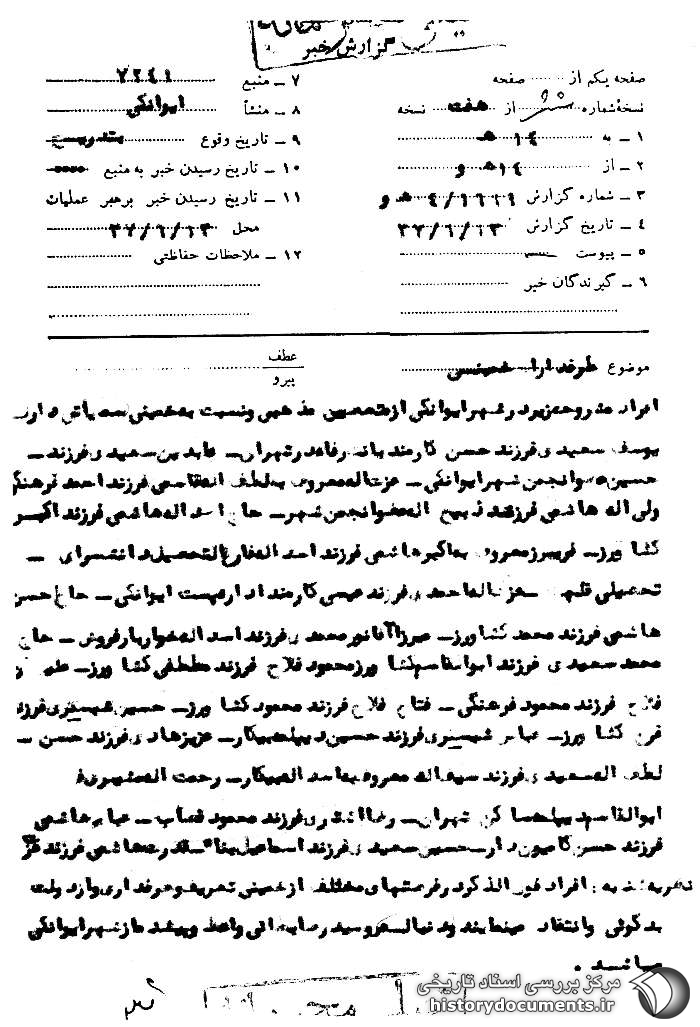 گزارش خبر
صفحه یکم از صفحه
نسخه شماره شش از هفت نسخه
۱ ـ به ۱۴ هـ
۲ ـ از ۱۴ هـ و
۳ ـ شماره گزارش ۴/۱۶۶۹ هـ و
۴ ـ تاریخ گزارش ۳۷/۶/۱۳
۵ ـ پیوست
۶ ـ گیرندگان خبر
۷ ـ منبع ۷۲۴۱
۸ ـ منشأ ایوانکی
۹ ـ تاریخ وقوع بتدریج
۱۰ ـ تاریخ رسیدن خبر به منبع
۱۱ ـ تاریخ رسیدن خبر برهبر عملیات
محل ۳۷/۶/۱۳
۱۲ ـ ملاحظات حفاظتی
عطف
پیرو
موضوع طرفداران خمینی
افراد مشروحه زیر در شهر ایوانکی از متعصبین مذهبی و نسبت به خمینی سمپاتی دارند
یوسف سعیدی فرزند حسن کارمند بانک رفاه در تهران ـ عابدین سعیدی فرزند ـ
حسین عضو انجمن شهر ایوانکی ـ عزت اله معروف به لطف اله قاسمی فرزند احمد فرهنگی
ولی اله هاشمی فرزند ذبیح اله عضو انجمن شهر ـ حاج اسداله هاشمی فرزند اکبر
کشاورز ـ فریبرز معروف به اکبر هاشمی فرزند اسداله فارغ التحصیل دانشسرای ـ
تحصیلی قلم ـ عزت اله احمدی فرزند عیسی کارمند اداره پست ایوانکی ـ حاج حسن
هاشمی فرزند محمد کشاورز ـ میرزا آقا نورمحمدی فرزند اسداله خواربارفروش ـ حاج
محمد سعیدی فرزند ابوالقاسم کشاورز محمود فلاح فرزند مصطفی کشاورز ـ علی
فلاح فرزند محمود فرهنگی ـ فتاح فلاح فرزند محمود کشاورز ـ حسین فرزند
کشاورز ـ عباس فرزند حسین دیپلمه بیکار ـ عزیز هادی فرزند حسن ـ
لطف اله سعیدی فرزند سیف اله معروف به اسداله بیکار ـ رحمت اله
ابوالقاسم دیپلمه ساکن تهران ـ رضا فرزند محمود قصاب ـ عباس هاشمی
فرزند حسن کامیون دار ـ حسین سعیدی فرزند اسماعیل بنا ـ قدرت هاشمی فرزند
نظریه شنبه : افراد فوق الذکر در فرصتهای مختلف از خمینی تعریف و طرفداری و از دولت
بدگوئی و انتقاد مینمایند و دنباله رو سید رضا واعظ و پیشنماز شهر ایوانکی
میباشند .
مرکز بررسی اسناد تاریخی
historydocuments.ir